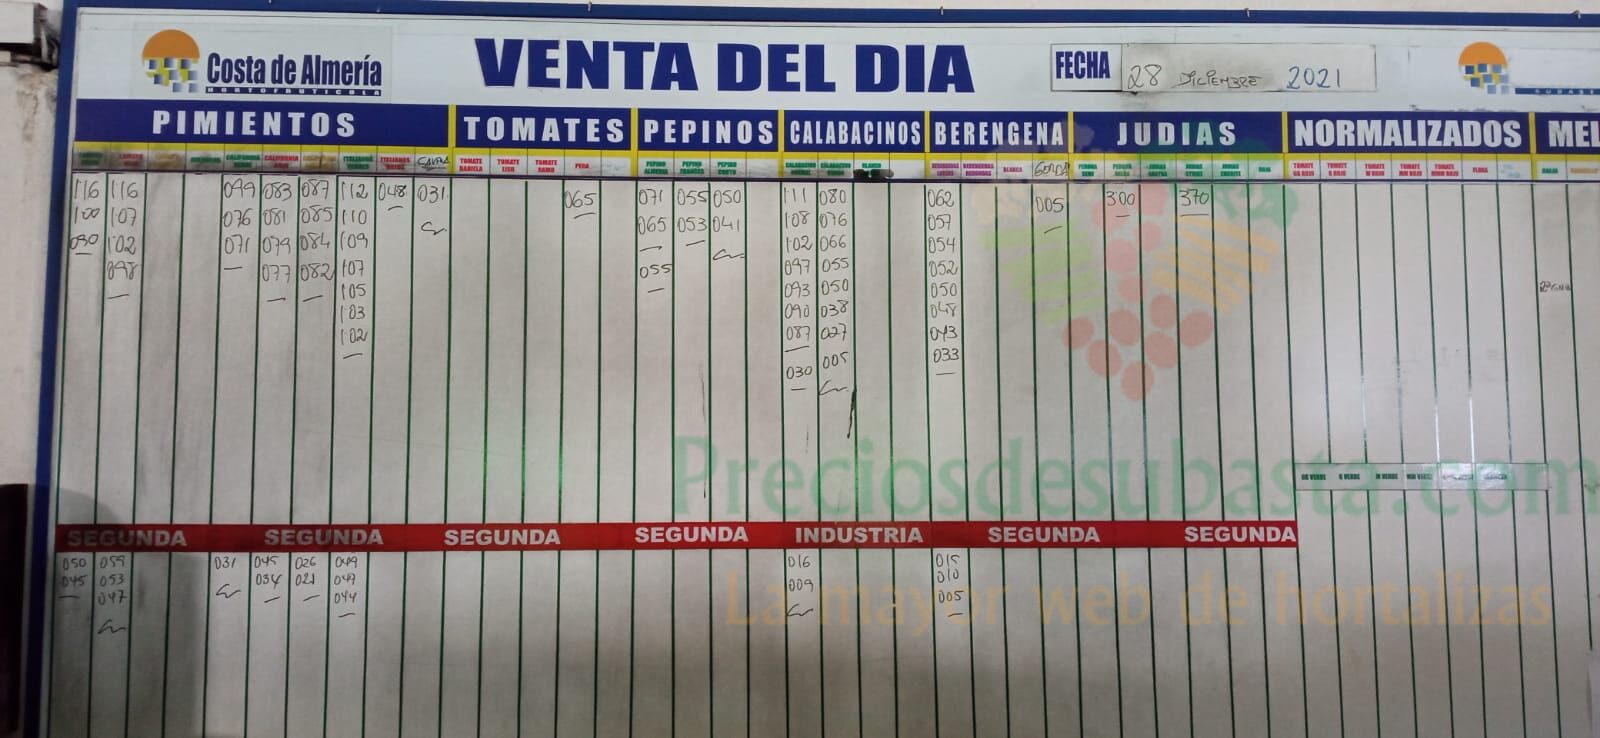 Costa de Almería
HORTOFRUTICOLA
VENTA DEL DIA
FECHA
28 DICIEMBRE 2021
PIMIENTOS TOMATES PEPINOS CALABACINOS BERENGENA JUDIAS NORMALIZADOS MEL
TOMATE DANIELA TOMATE LISO TOMATE RAMO PERA PEPINO ALMERIA PEPINO FRANCES PEPINO CORTO BLANCA GORDA FLORA GALIA
116 116 099 083 087 112 048 031 065 071 055 050 111 080 062 005 300 370
100 107 076 081 085 110 065 053 041 108 076 057
090 102 071 079 084 109 102 066 054
098 077 082 107 055 097 055 052
105 093 050 050
103 090 038 048
102 087 027 043
030 005 033
Preciosdesubasta.com
GG VERDE G VERDE M VERDE MM VERDE
SEGUNDA SEGUNDA SEGUNDA SEGUNDA INDUSTRIA SEGUNDA SEGUNDA
050 059 031 045 026 049 016 015
045 053 034 021 047 009 010
047 044 005
La mayor web de hortalizas